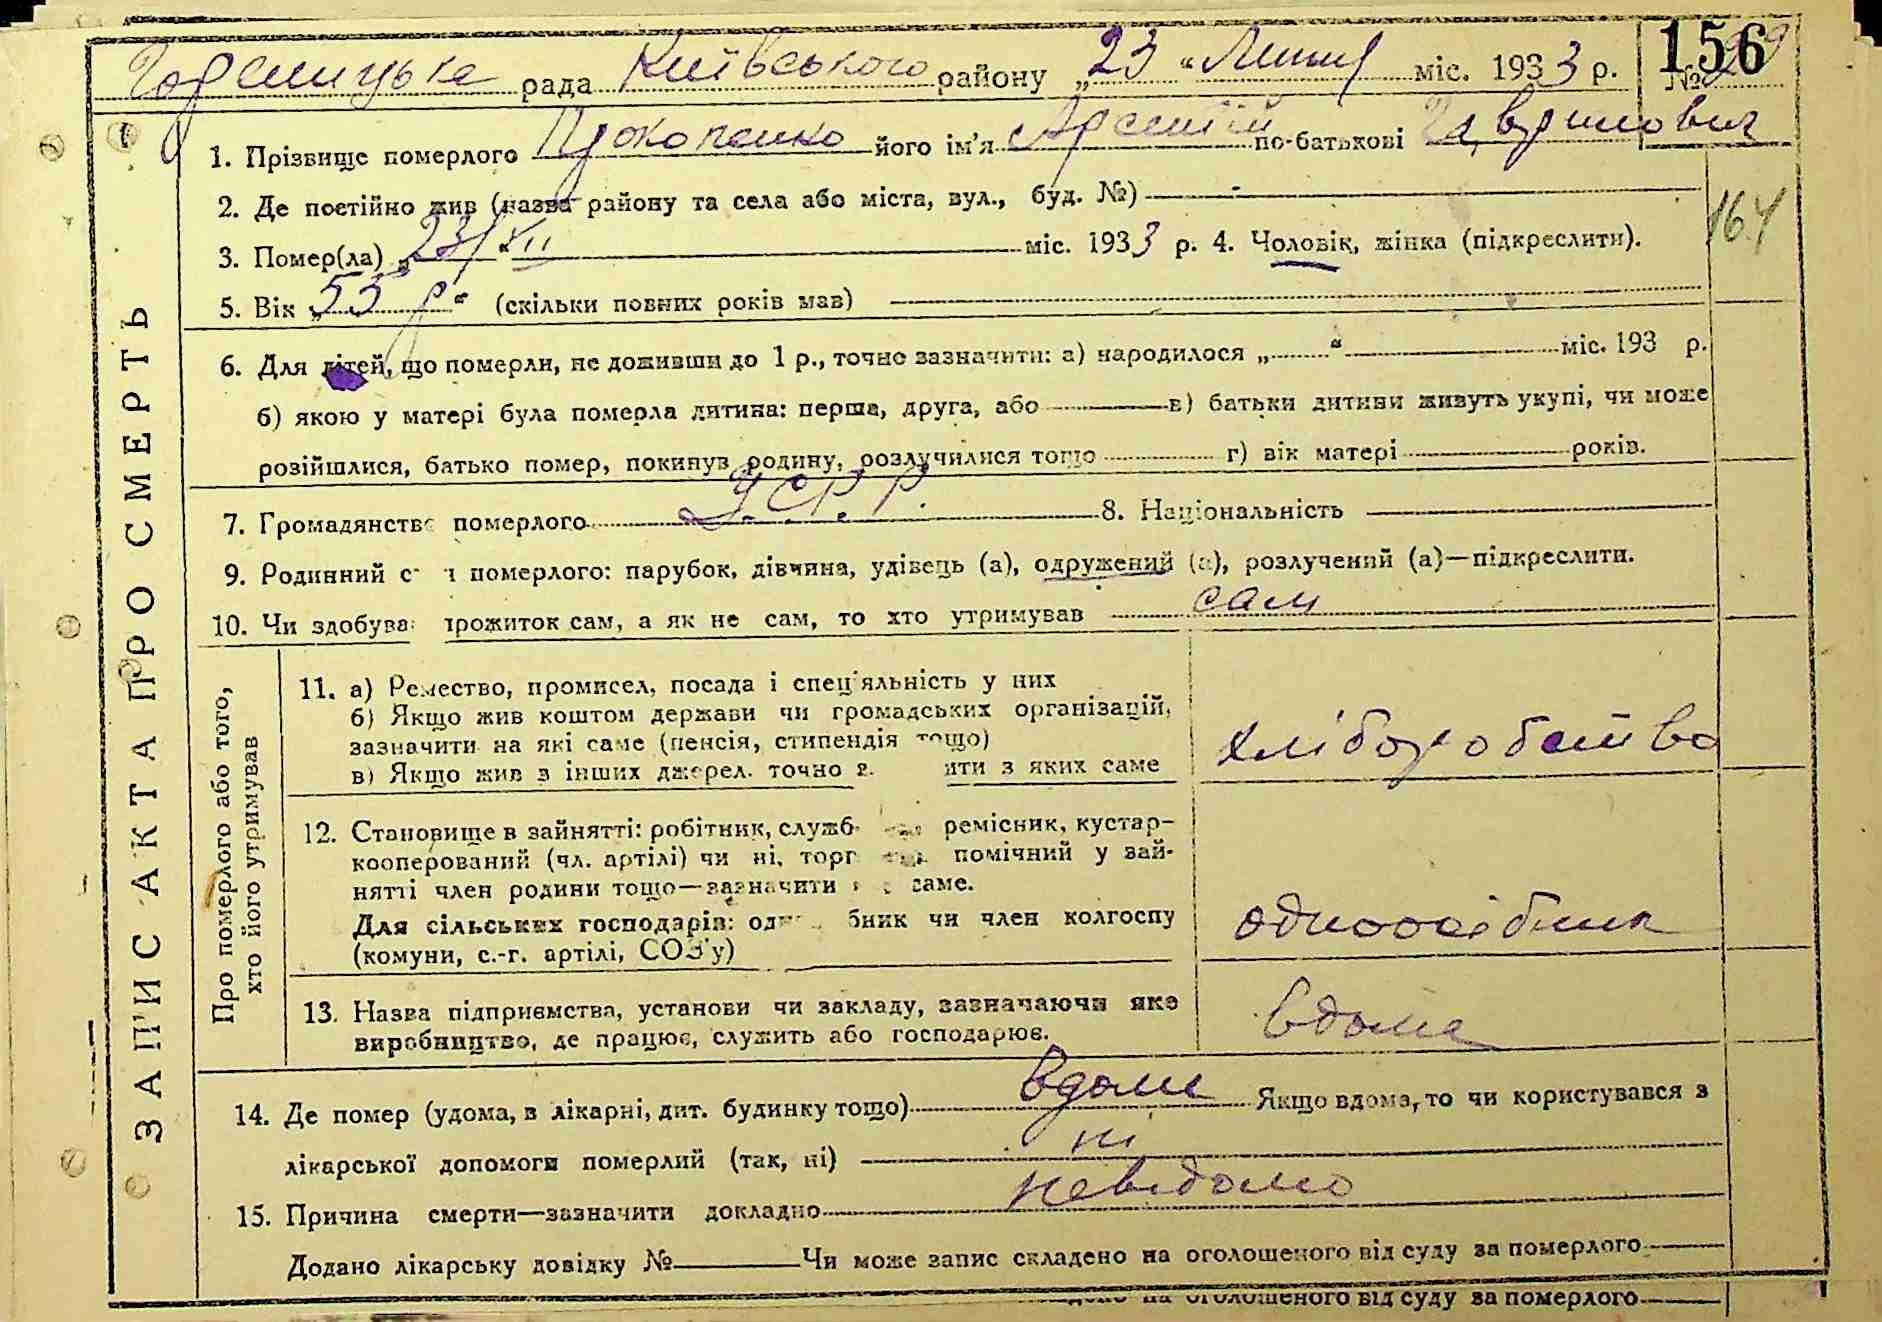 Гореницька рада Київського району „23“ Липня міс. 1933 р. № 29
156
1. Прізвище померлого Прокопенко його ім'я Арсентій по-батькові Гаврилович
2. Де постійно жив (назва району та села або міста, вул., буд. №) —
164
3. Помер(ла) „23/VII“ міс. 1933 р. 4. Чоловік, жінка (підкреслити).
5. Вік „55 р“ (скільки повних років мав)
6. Для дітей, що померли, не доживши до 1 р., точно зазначити: а) народилося „ “ міс. 193 р.
б) якою у матері була померла дитина: перша, друга, або в) батьки дитини живуть укупі, чи може
розійшлися, батько помер, покинув родину, розлучилися тощо г) вік матері років.
7. Громадянство померлого У.С.Р.Р. 8. Національність
9. Родинний с н померлого: парубок, дівчина, удівець (а), одружений (а), розлучений (а)—підкреслити.
10. Чи здобува прожиток сам, а як не сам, то хто утримував сам
ЗАПИС АКТА ПРО СМЕРТЬ
Про померлого або того,
хто його утримував
11. а) Ремество, промисел, посада і спеціяльність у них
б) Якщо жив коштом держави чи громадських організацій,
зазначити на які саме (пенсія, стипендія тощо)
в) Якщо жив з інших джерел, точно з ити з яких саме
хліборобство
12. Становище в зайнятті: робітник, служб ремісник, кустар-
кооперований (чл. артілі) чи ні, торг помічний у зай-
нятті член родини тощо—зазначити саме.
Для сільських господарів: од бник чи член колгоспу
(комуни, с.-г. артілі, СОЗ'у)
одноосібник
13. Назва підприємства, установи чи закладу, зазначаючи яке
виробництво, де працює, служить або господарює.
вдома
14. Де помер (удома, в лікарні, дит. будинку тощо) вдома Якщо вдома, то чи користувався з
лікарської допомоги померлий (так, ні) ні
15. Причина смерти—зазначити докладно невідомо
Додано лікарську довідку № Чи може запис складено на оголошеного від суду за померлого
на оголошеного від суду за померлого